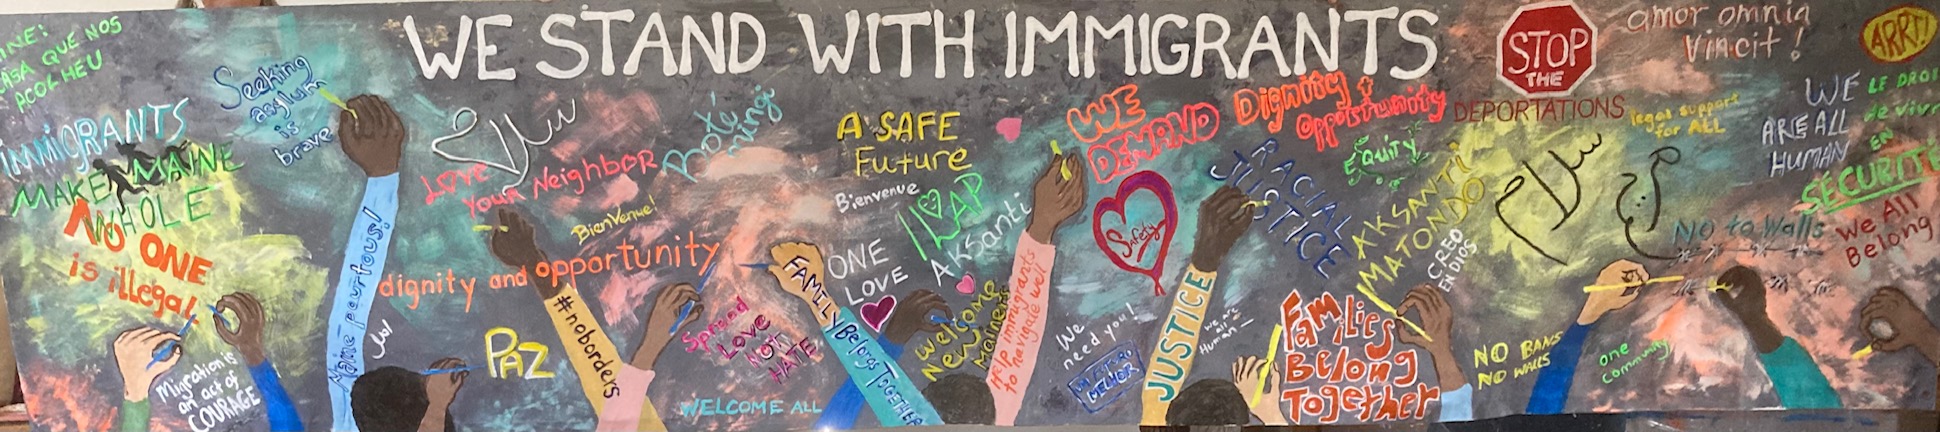 WE STAND WITH IMMIGRANTS
INE:
CASA QUE NOS
ACOLHEU
IMMIGRANTS
MAKE MAINE
WHOLE
NO ONE
is illegal
Seeking
asylum
is
brave
Migration is
an act of
COURAGE
Maine pour tous!
LOVE
Your Neighbor
Boté
mingi
BienVenue!
dignity and opportunity
#noborders
PAZ
Spread
Love
NOT
HATE
WELCOME ALL
A SAFE
Future
Bienvenue
ILAP
Aksanti
ONE
LOVE
FAMILY Belongs Together
Welcome
New
Mainers
Help immigrants
to navigate well
WE
DEMAND
Safety
We
need you!
UN FUTURO
MEJOR
JUSTICE
We are
all
Human
Dignity +
Opportunity
Equity
RACIAL
JUSTICE
Families
Belong
Together
AKSANTI
MATONDO
CREO
EN DIOS
STOP
THE
DEPORTATIONS
amor omnia
vincit!
legal support
for ALL
سلام
NO BANS
NO WALLS
one
community
NO to Walls
ARRT!
WE
ARE ALL
HUMAN
LE DROIT
de vivre
EN
SÉCURITÉ
We All
Belong